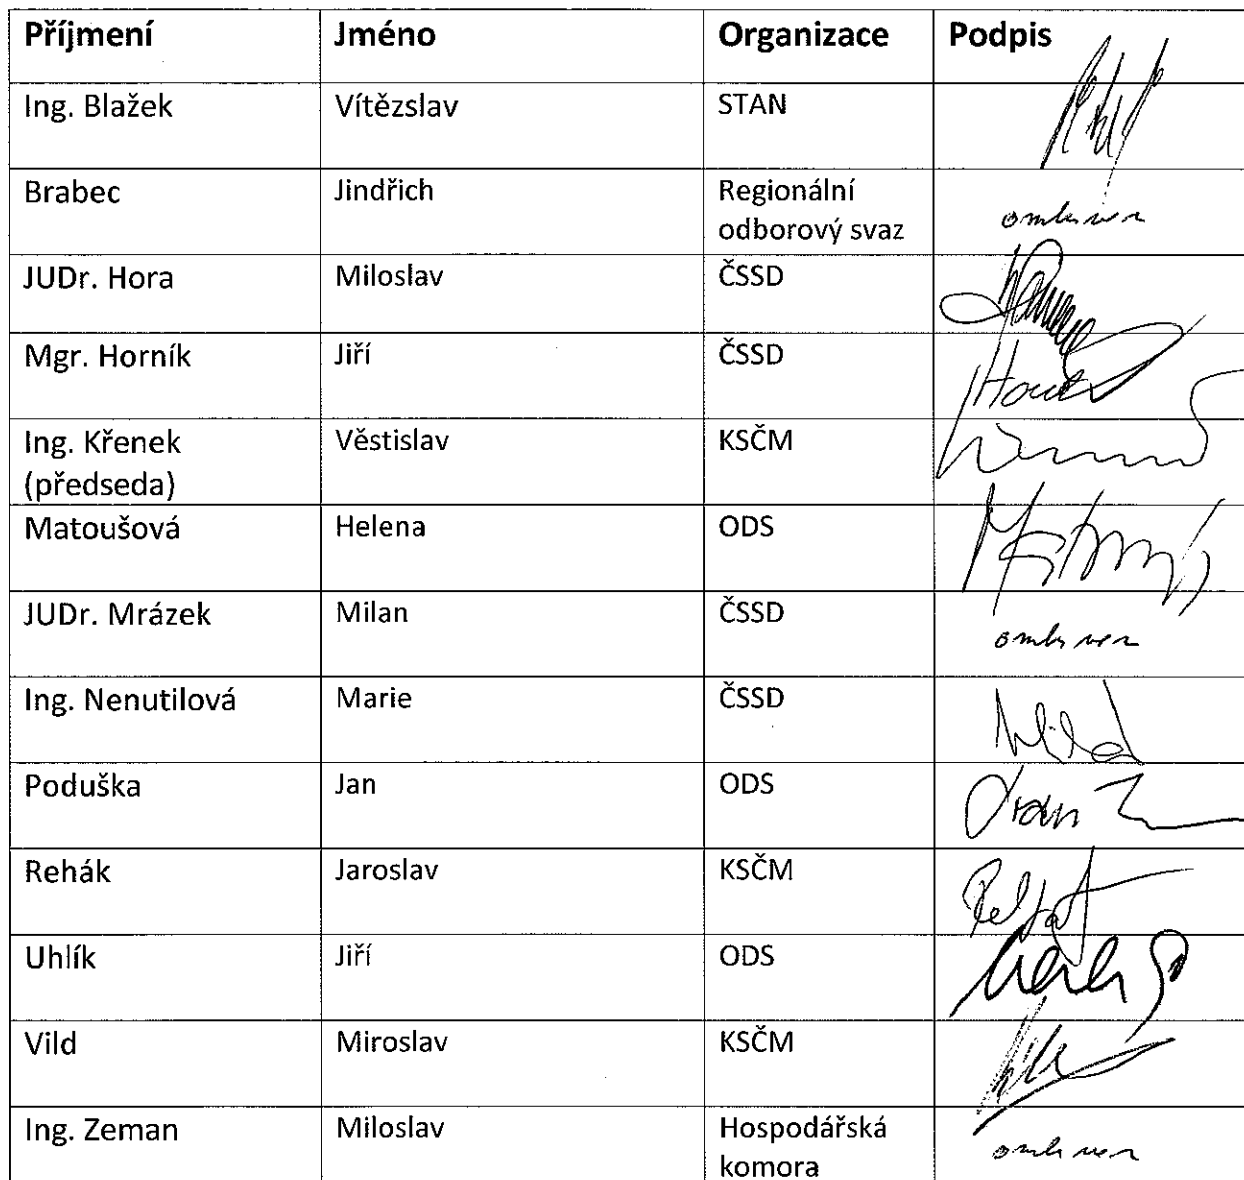 Příjmení Jméno Organizace Podpis
Ing. Blažek Vítězslav STAN
Brabec Jindřich Regionální
odborový svaz omluven
JUDr. Hora Miloslav ČSSD
Mgr. Horník Jiří ČSSD
Ing. Křenek Věstislav KSČM
(předseda)
Matoušová Helena ODS
JUDr. Mrázek Milan ČSSD
omluven
Ing. Nenutilová Marie ČSSD
Poduška Jan ODS
Rehák Jaroslav KSČM
Uhlík Jiří ODS
Vild Miroslav KSČM
Ing. Zeman Miloslav Hospodářská
komora omluven